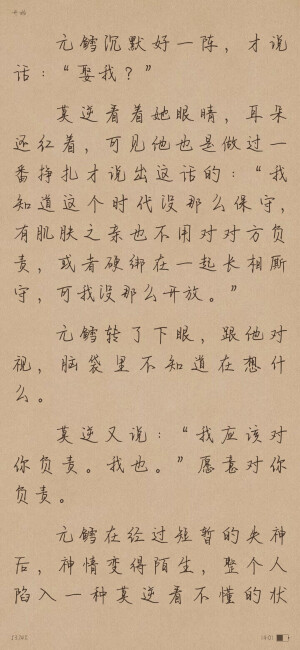 元鳕沉默好一阵，才说
话：“娶我？”
莫逆看着她眼睛，耳朵
还红着，可见他也是做过一
番挣扎才说出这话的：“我
知道这个时代没那么保守，
有肌肤之亲也不用对对方负
责，或者硬绑在一起长相厮
守，可我没那么开放。”
元鳕转了下眼，跟他对
视，脑袋里不知道在想什
么。
莫逆又说：“我应该对
你负责。我也。”愿意对你
负责。
元鳕在经过短暂的失神
后，神情变得陌生，整个人
陷入一种莫逆看不懂的状